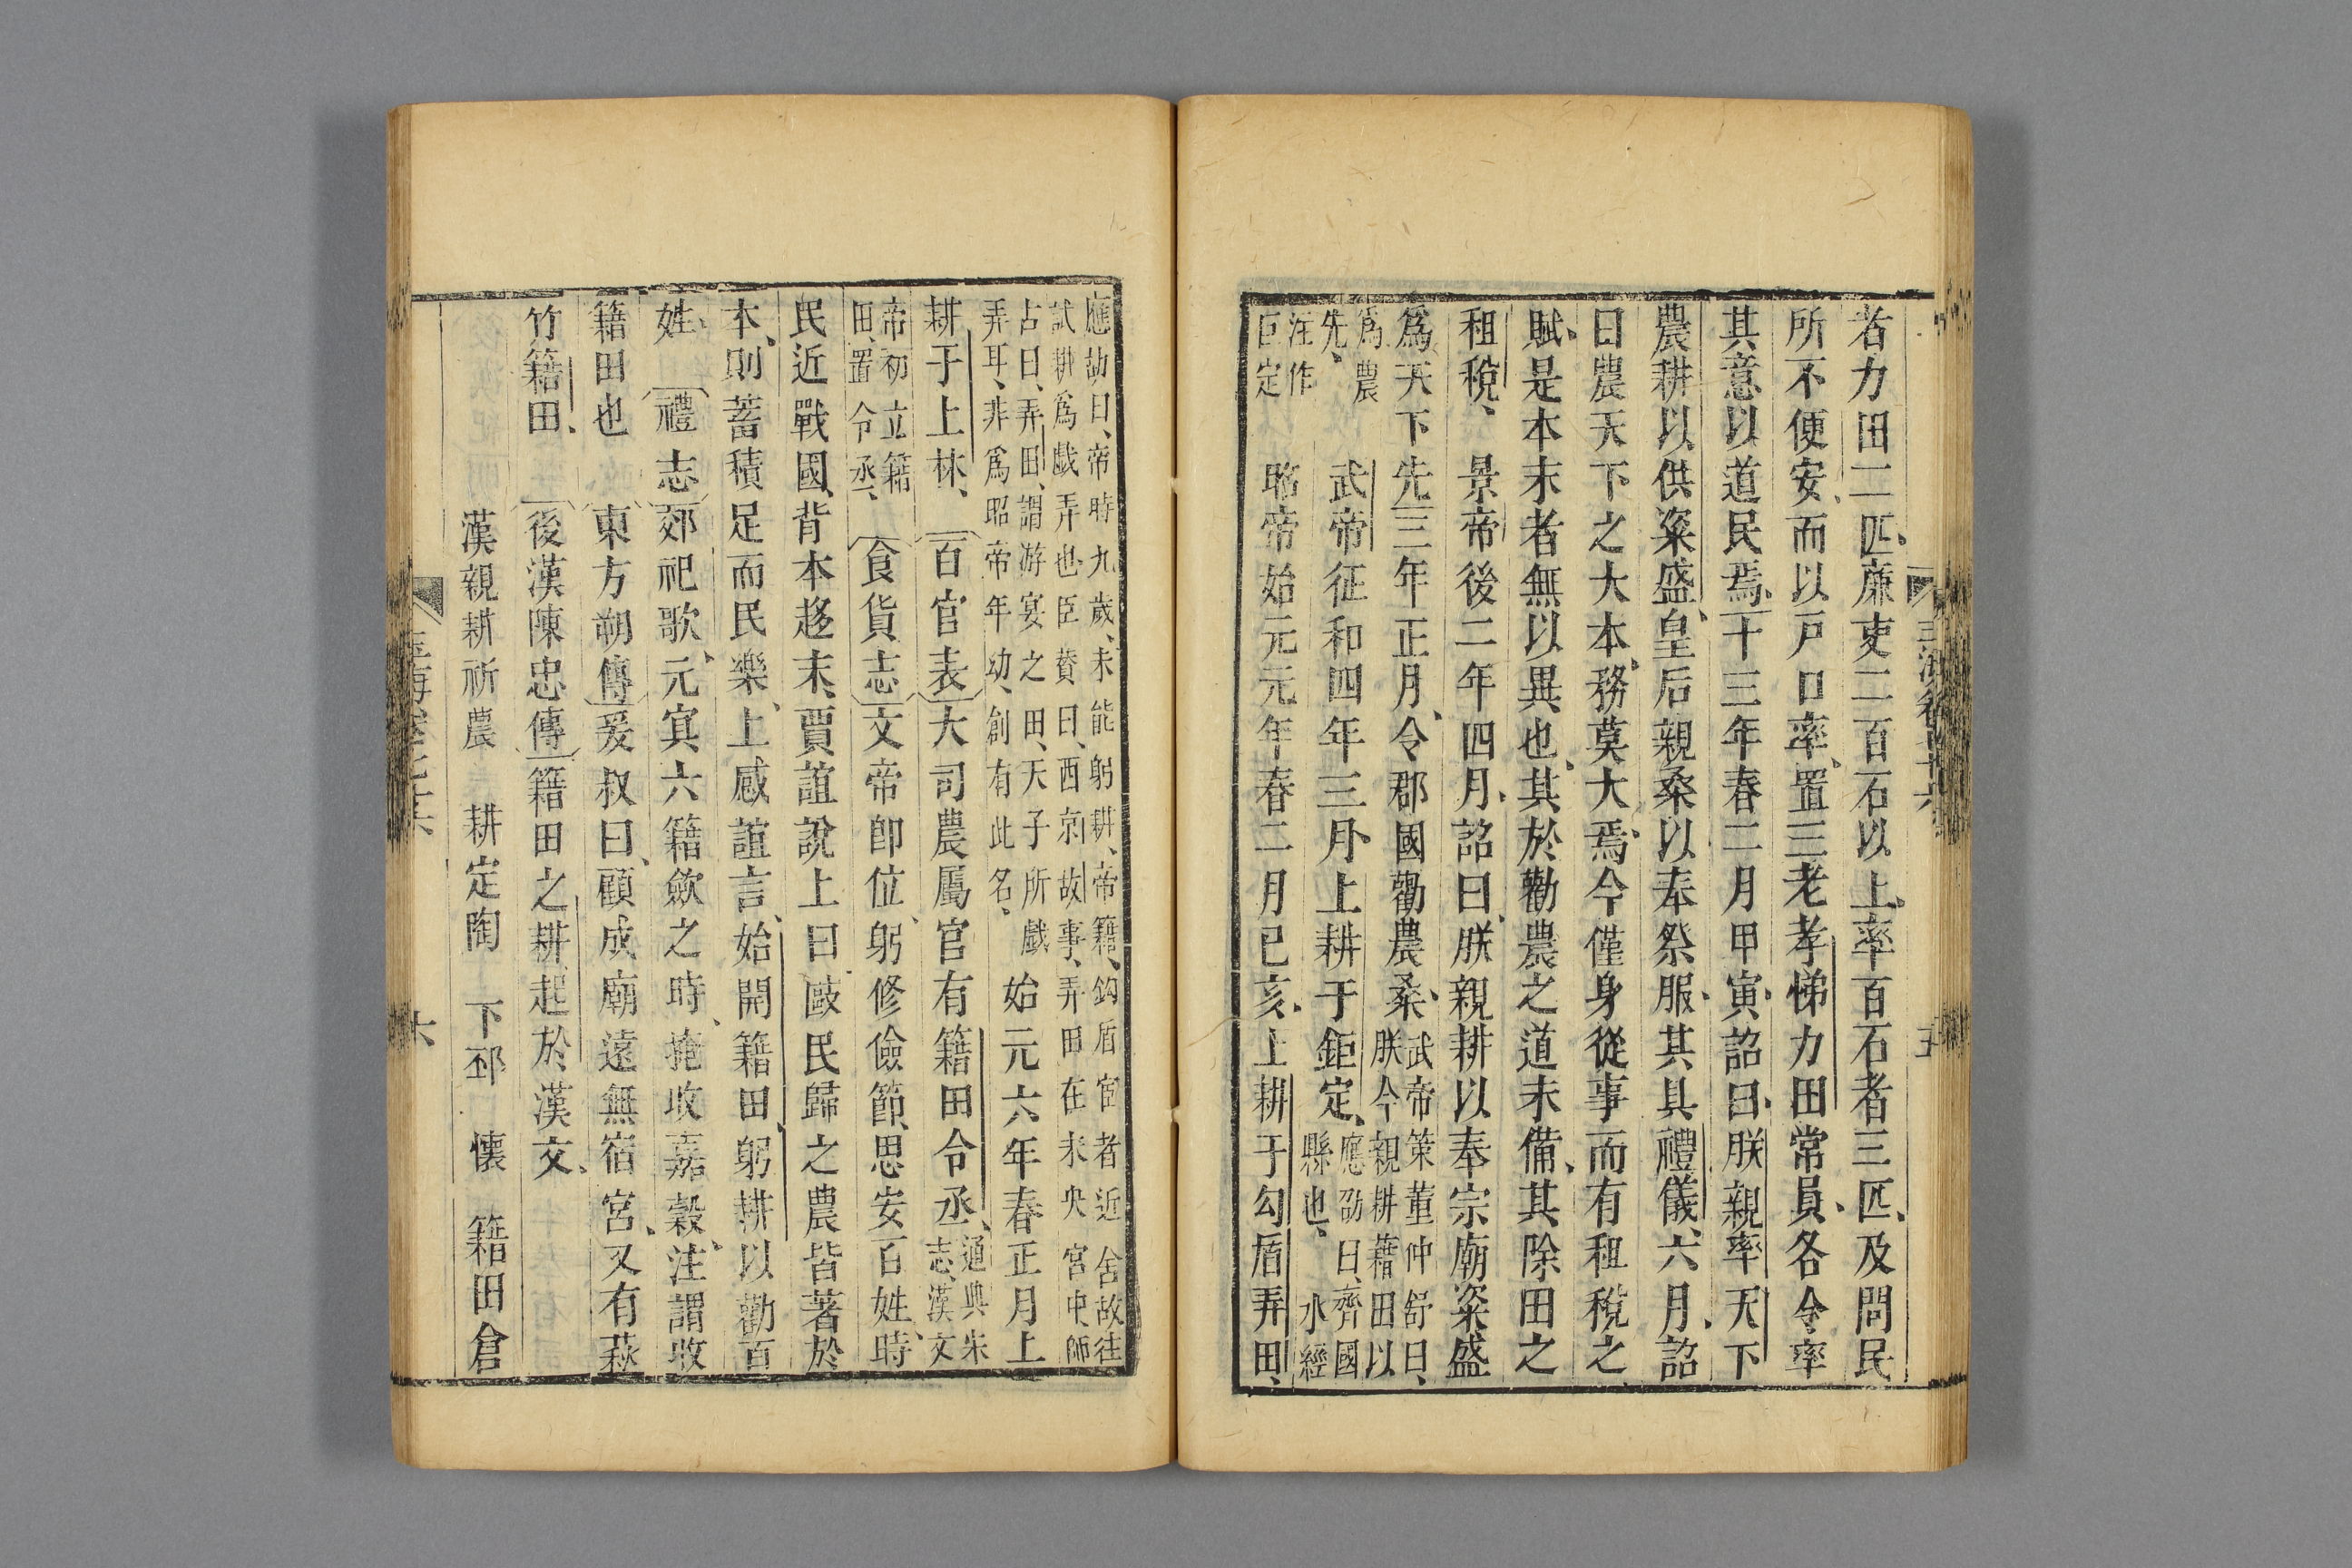 者力田二匹廉吏二百石以上率百石者三匹及問民
所不便安而以戸口率置三老孝悌力田常員各令率
其意以道民焉十三年春二月甲寅詔曰朕親率天下
農耕以供粢盛皇后親桑以奉祭服其具禮儀六月詔
曰農天下之大本務莫大焉今僅身從事而有租稅之
賦是本末者無以異也其於勸農之道未備其除田之
租稅 景帝後二年四月詔曰朕親耕以奉宗廟粢盛
爲天下先三年正月令郡國勸農桑 武帝策董仲舒曰
朕今親耕藉田以
爲農
先 武帝征和四年三月上耕于鉅定 應劭曰齊國
縣也 水經
注作
巨定 昭帝始元元年春二月已亥上耕于勾盾弄田
應劭曰帝時九歲未能躬耕帝籍鈎盾宦者近舍故往
試耕爲戲弄也臣瓚曰西京故事弄田在未央宮中師
古曰弄田謂游宴之田天子所戲
弄耳非爲昭帝年幼創有此名 始元六年春正月上
耕于上林 百官表大司農屬官有籍田令丞 通典朱
志漢文
帝初立籍
田置令丞 食貨志文帝卽位躬修儉節思安百姓時
民近戰國背本趍末賈誼說上曰敺民歸之農皆著於
本則蓄積足而民樂上感誼言始開籍田躬耕以勸百
姓 禮志郊祀歌元㝠六籍斂之時掩收嘉穀注謂收
籍田也 東方朔傳爰叔曰顧成廟遠無宿宮又有萩
竹籍田 後漢陳忠傳籍田之耕起於漢文
漢親耕祈農 耕定陶 下邳 懷 籍田倉
六